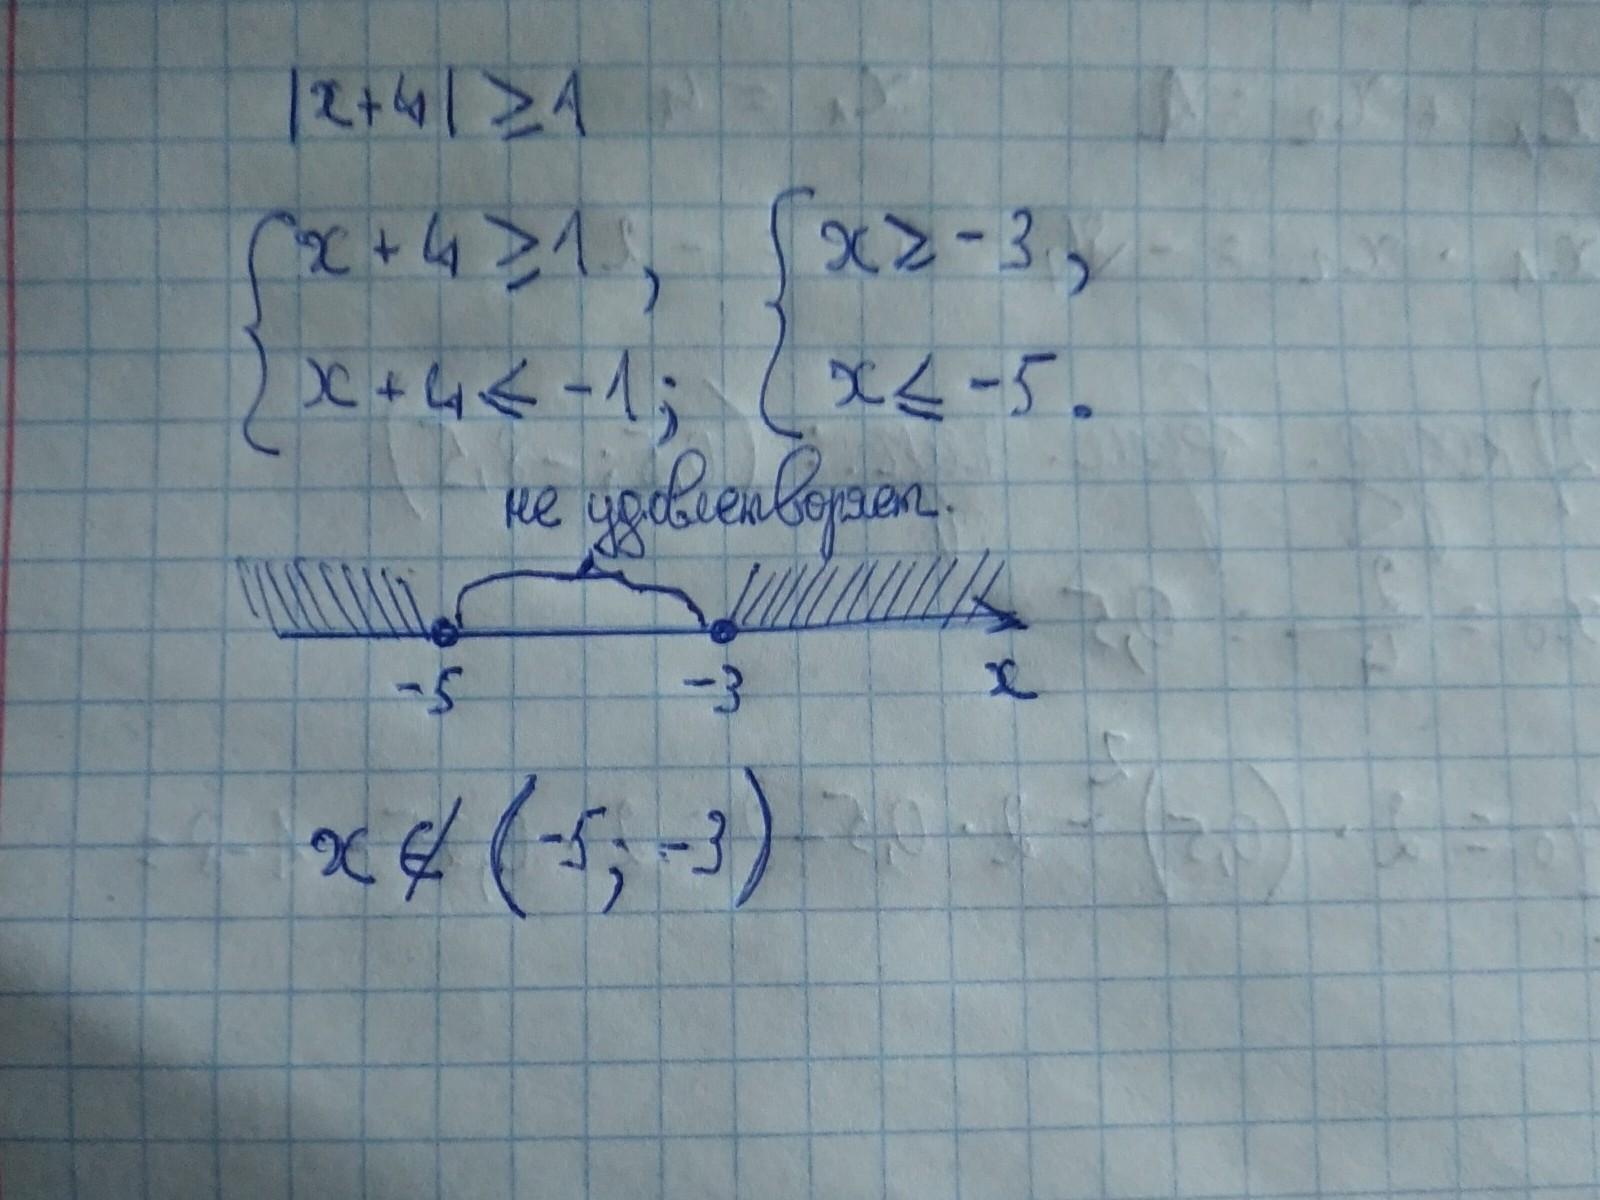 |x+4| ≥ 1
x + 4 ≥ 1 , x ≥ -3 ,
x + 4 ≤ -1 ; x ≤ -5 .
не удовлетворяет.
-5 -3 x
x ∉ (-5; -3)